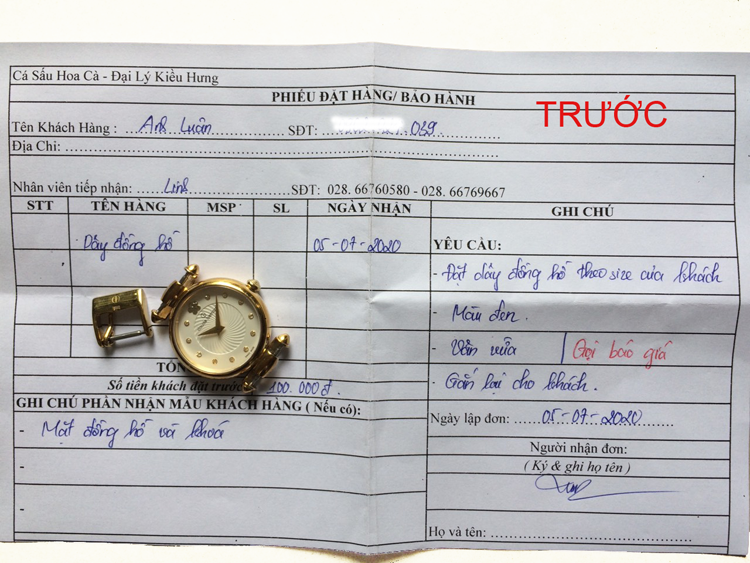 Cá Sấu Hoa Cà - Đại Lý Kiều Hưng
PHIẾU ĐẶT HÀNG/ BẢO HÀNH
TRƯỚC
Tên Khách Hàng : Anh Luân SĐT: 039
Địa Chỉ:
Nhân viên tiếp nhận: Linh SĐT: 028. 66760580 - 028. 66769667
STT TÊN HÀNG MSP SL NGÀY NHẬN GHI CHÚ
Dây đồng hồ 05-07-2020
YÊU CẦU:
- Đặt dây đồng hồ theo size của khách
- Màu đen.
- Vân vừa Gọi báo giá
- Gắn lại cho khách.
TỔN
Số tiền khách đặt trước 100.000đ
Ngày lập đơn: 05-07-2020
GHI CHÚ PHẦN NHẬN MẪU KHÁCH HÀNG ( Nếu có):
- Mặt đồng hồ và khoá
-
-
Người nhận đơn:
( Ký & ghi họ tên )
Họ và tên: